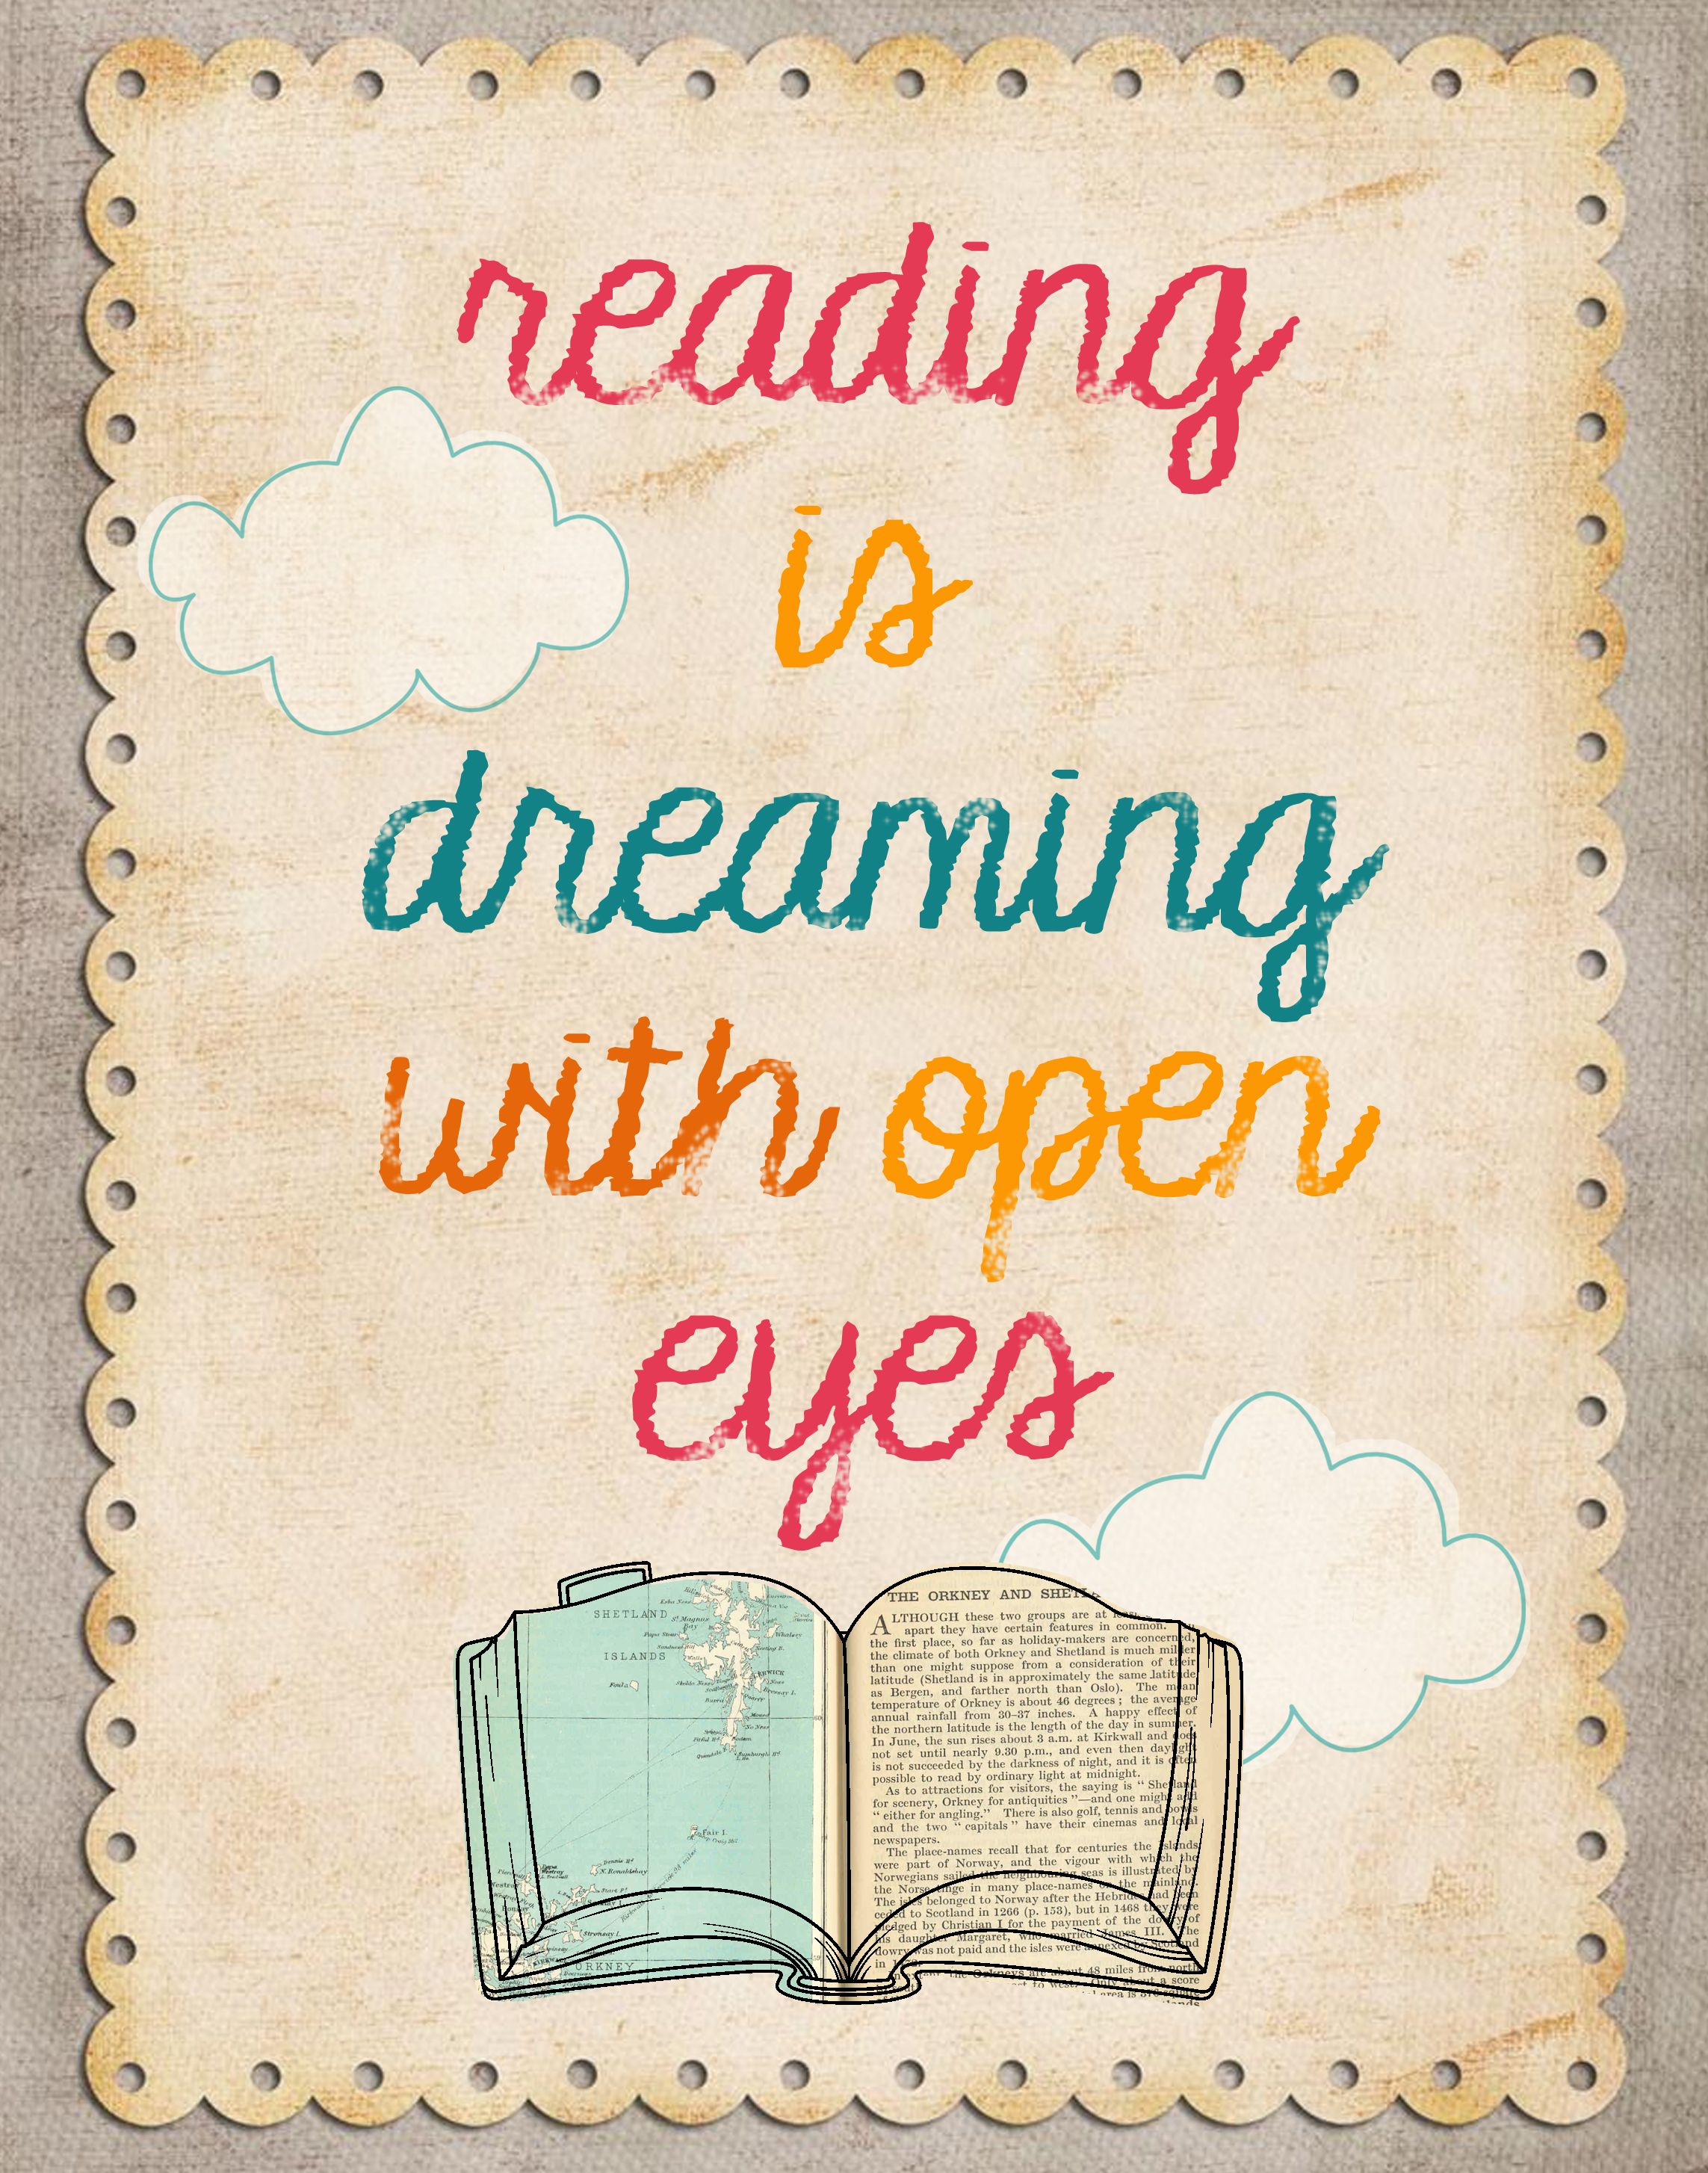 reading
is
dreaming
with open
eyes
SHETLAND
ISLANDS
Foula
Fair I.
N. Ronaldshay
Stronsay I.
ORKNEY
THE ORKNEY AND SHETL
ALTHOUGH these two groups are at least
apart they have certain features in common. In
the first place, so far as holiday-makers are concerned,
the climate of both Orkney and Shetland is much milder
than one might suppose from a consideration of their
latitude (Shetland is in approximately the same latitude
as Bergen, and farther north than Oslo). The mean
temperature of Orkney is about 46 degrees; the average
annual rainfall from 30-37 inches. A happy effect of
the northern latitude is the length of the day in summer.
In June, the sun rises about 3 a.m. at Kirkwall and does
not set until nearly 9.30 p.m., and even then daylight
is not succeeded by the darkness of night, and it is often
possible to read by ordinary light at midnight.
As to attractions for visitors, the saying is “ Shetland
for scenery, Orkney for antiquities ”—and one might add
“ either for angling.” There is also golf, tennis and bowls
and the two “ capitals ” have their cinemas and local
newspapers.
The place-names recall that for centuries the islands
were part of Norway, and the vigour with which the
Norwegians sailed the neighbouring seas is illustrated by
the Norse tinge in many place-names of the mainland.
The isles belonged to Norway after the Hebrides had been
ceded to Scotland in 1266 (p. 153), but in 1468 they were
pledged by Christian I for the payment of the dowry of
his daughter Margaret, who married James III. The
dowry was not paid and the isles were annexed by Scotland
in
the Orkneys are about 48 miles from north
to west. Only about a score
area is